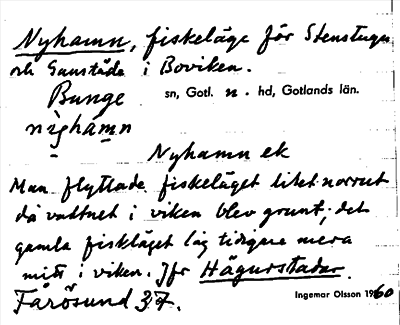 Nyhamn, fiskeläge för Stenstugu
och Gunstäde i Boviken.
Bunge sn, Gotl. n. hd, Gotlands län.
nìghámn
Nyhamn ek
Man flyttade fiskeläget litet norrut
då vattnet i viken blev grunt; det
gamla fiskläget låg tidigare mera
mitt i viken. Jfr Hägurstadar.
Fårösund 37. Ingemar Olsson 1960